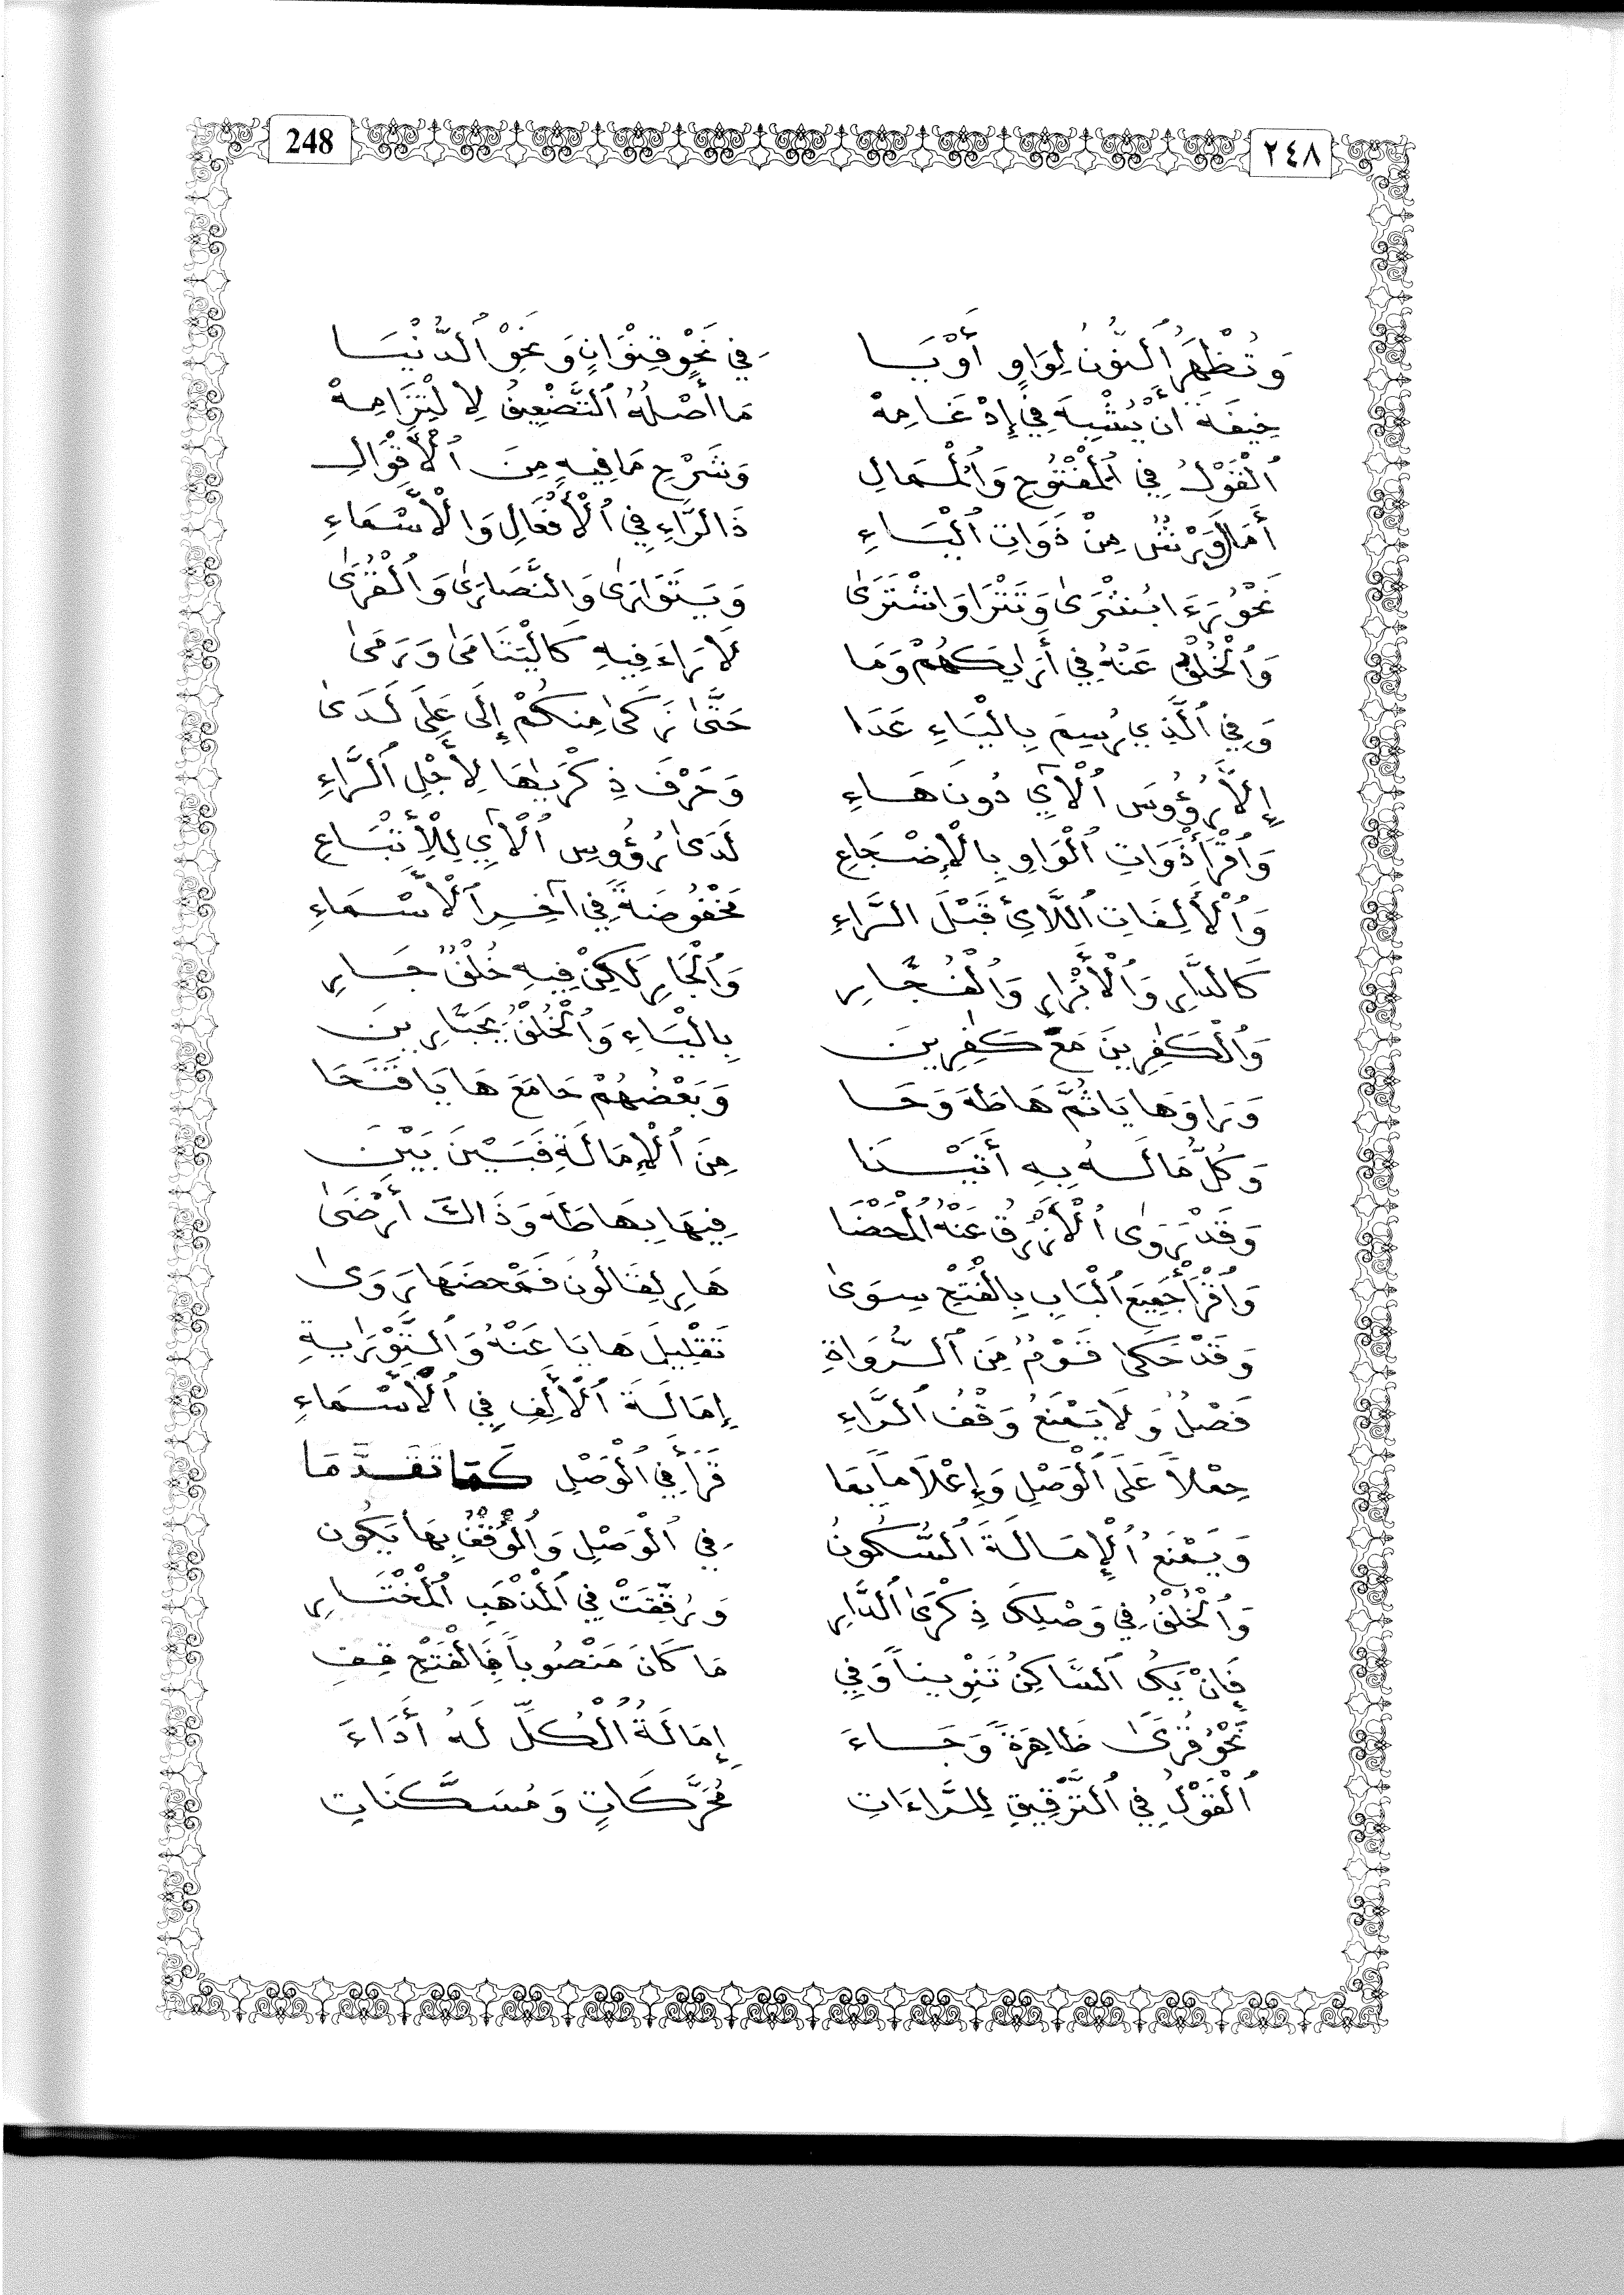 248 ٢٤٨
وَتُظْهَرُ ٱلنُّونُ لِوَاوٍ أَوْ يَا فِي نَحْوِ قِنْوَانٍ وَنَحْوِ ٱلدُّنْيَا
خِيفَةَ أَنْ يُشْبِهَ فِي إِدْغَامِهْ مَا أَصْلُهُ ٱلتَّضْعِيفُ لِالْتِزَامِهْ
ٱلْقَوْلُ فِي ٱلْمَفْتُوحِ وَٱلْمُمَالِ وَشَرْحِ مَا فِيهِ مِنَ ٱلْأَقْوَالِ
أَمَالَ وَرْشٌ مِنْ ذَوَاتِ ٱلْيَاءِ ذَا ٱلرَّاءِ فِي ٱلْأَفْعَالِ وَالْأَسْمَاءِ
نَحْوُ رَءَا بُشْرَىٰ وَتَتْرَا وَاشْتَرَىٰ وَيَتَوَارَىٰ وَالنَّصَارَىٰ وَٱلْقُرَىٰ
وَٱلْخُلْفُ عَنْهُ فِي أَرَيٰكَهُمْ وَمَا لَا رَاءَ فِيهِ كَالْيَتَامَىٰ وَرَمَىٰ
وَفِي ٱلَّذِي رُسِمَ بِالْيَاءِ عَدَا حَتَّىٰ زَكَىٰ مِنكُمْ إِلَىٰ عَلَىٰ لَدَىٰ
إِلَّا رُؤُوسَ ٱلْآيِ دُونَ هَاءِ وَحَرْفَ ذِكْرَيٰهَا لِأَجْلِ ٱلرَّاءِ
وَٱقْرَأْ ذَوَاتِ ٱلْوَاوِ بِالْإِضْجَاعِ لَدَىٰ رُؤُوسِ ٱلْآيِ لِلْأَتْبَاعِ
وَٱلْأَلِفَاتِ ٱللَّائِي قَبْلَ الرَّاءِ مَخْفُوضَةً فِي آخِرِ ٱلْأَسْمَاءِ
كَالدَّارِ وَٱلْأَبْرَارِ وَٱلْفُجَّارِ وَٱلْجَارِ لَكِنْ فِيهِ خُلْفٌ جَارِ
وَٱلْكَٰفِرِينَ مَعْ كَٰفِرِينَ بِالْيَاءِ وَٱلْخُلْفُ بِجَبَّارِينَ
وَرَا وَهَا يَا ثُمَّ هَا طَهَ وَحَا وَبَعْضُهُمْ حَا مَعَ هَا يَا فَتَحَا
وَكُلُّ مَا لَهُ بِهِ أَتَيْنَا مِنَ ٱلْإِمَالَةِ فَبَيْنَ بَيْنَ
وَقَدْ رَوَىٰ ٱلْأَزْرَقُ عَنْهُ ٱلْمَحْضَا فِيهَا بِهَا طَهَ وَذَاكَ أَرْضَىٰ
وَٱقْرَأْ جَمِيعَ ٱلْبَابِ بِالْفَتْحِ سِوَىٰ هَارٍ لِقَالُونَ فَمَحْضَهَا رَوَىٰ
وَقَدْ حَكَىٰ قَوْمٌ مِنَ ٱلرُّوَاةِ تَقْلِيلَ هَا يَا عَنْهُ وَٱلتَّوْرَيٰةِ
فَصْلٌ وَلَا يَمْنَعُ وَقْفُ ٱلرَّاءِ إِمَالَةَ ٱلْأَلِفِ فِي ٱلْأَسْمَاءِ
حِمْلاً عَلَى ٱلْوَصْلِ وَإِعْلَاماً بِمَا قَرَأَ فِي ٱلْوَصْلِ كَمَا تَقَدَّمَا
وَيَمْنَعُ ٱلْإِمَالَةَ ٱلسُّكُونُ فِي ٱلْوَصْلِ وَٱلْوَقْفُ بِهَا يَكُونُ
وَٱلْخُلْفُ فِي وَصْلِكَ ذِكْرَى ٱلدَّارِ وَرُقِّقَتْ فِي ٱلْمَذْهَبِ ٱلْمُخْتَارِ
فَإِنْ يَكُ ٱلسَّاكِنُ تَنْوِيناً وَفِي مَا كَانَ مَنْصُوباً فَبِالْفَتْحِ قِفِ
نَحْوُ قُرًى ظَاهِرَةً وَجَاءَ إِمَالَةُ ٱلْكُلِّ لَهُ أَدَاءَ
ٱلْقَوْلُ فِي ٱلتَّرْقِيقِ لِلرَّاءَاتِ مُحَرَّكَاتٍ وَمُسَكَّنَاتِ